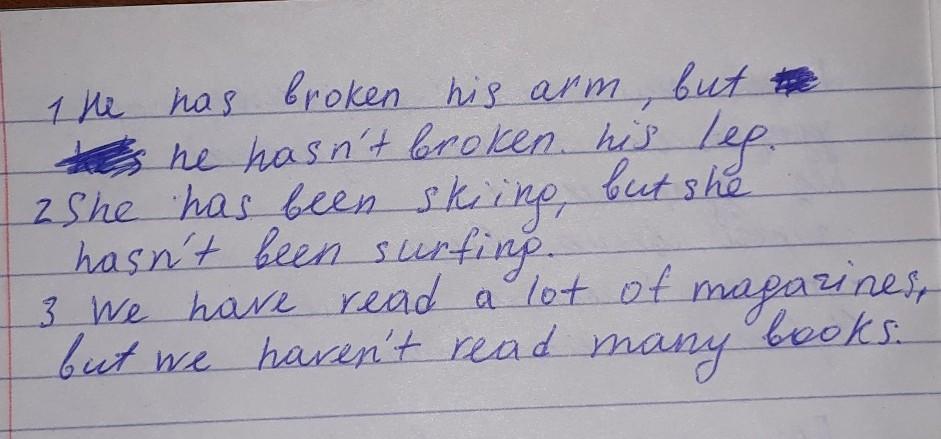 1 He has broken his arm, but
he hasn't broken. his leg.
2 She has been skiing, but she
hasn't been surfing.
3 We have read a lot of magazines,
but we haven't read many books.